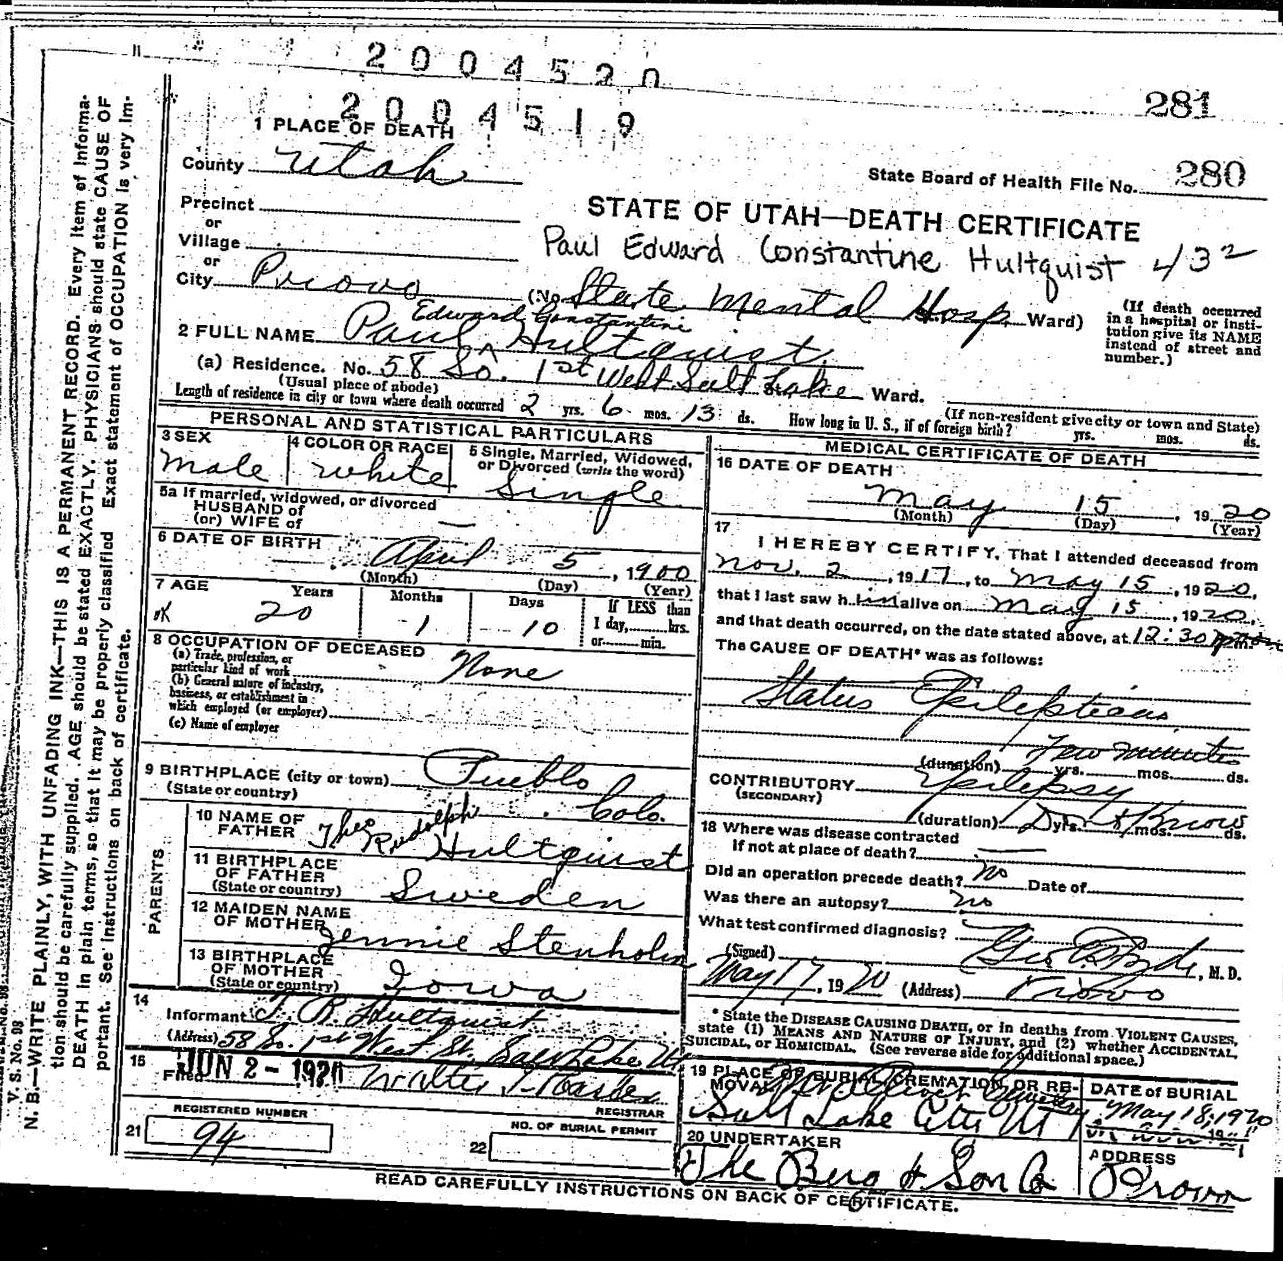 2004520
2004519
281
1 PLACE OF DEATH
County Utah
State Board of Health File No. 280
Precinct
or
Village
or
STATE OF UTAH—DEATH CERTIFICATE
Paul Edward Constantine Hultquist 432
City Provo (No. State Mental Hosp. Ward)
(If death occurred in a hospital or institution give its NAME instead of street and number.)
Edward Constantine
2 FULL NAME Paul ^ Hultquist
(a) Residence. No. 58 So. 1st West Salt Lake Ward.
(Usual place of abode)
(If non-resident give city or town and State)
Length of residence in city or town where death occurred 2 yrs. 6 mos. 13 ds. How long in U. S., if of foreign birth? yrs. mos. ds.
PERSONAL AND STATISTICAL PARTICULARS
3 SEX
male
4 COLOR OR RACE
white
5 Single, Married, Widowed, or Divorced (write the word)
Single
5a If married, widowed, or divorced
HUSBAND of
(or) WIFE of —
6 DATE OF BIRTH
April 5, 1900
(Month) (Day) (Year)
7 AGE Years Months Days If LESS than
1 day, hrs.
or min.
20 1 10
8 OCCUPATION OF DECEASED
(a) Trade, profession, or
particular kind of work None
(b) General nature of industry,
business, or establishment in
which employed (or employer)
(c) Name of employer
9 BIRTHPLACE (city or town) Pueblo
(State or country) Colo.
PARENTS
10 NAME OF
FATHER Theo Rudolph Hultquist
11 BIRTHPLACE
OF FATHER
(State or country) Sweden
12 MAIDEN NAME
OF MOTHER Jennie Stenholm
13 BIRTHPLACE
OF MOTHER
(State or country) Iowa
14
Informant T. R. Hultquist
(Address) 58 So. 1st West St. Salt Lake Ut
15
Filed JUN 2 - 1920 Walter T.
REGISTRAR
REGISTERED NUMBER
21 94
NO. OF BURIAL PERMIT
22
MEDICAL CERTIFICATE OF DEATH
16 DATE OF DEATH
May 15, 1920
(Month) (Day) (Year)
17
I HEREBY CERTIFY, That I attended deceased from
Nov. 2, 1917, to May 15, 1920,
that I last saw him alive on May 15, 1920,
and that death occurred, on the date stated above, at 12:30 p m.
The CAUSE OF DEATH* was as follows:
Status Epilepticus
Few minutes
(duration) yrs. mos. ds.
CONTRIBUTORY Epilepsy
(SECONDARY)
(duration) yrs. mos. ds.
18 Where was disease contracted
if not at place of death? —
Did an operation precede death? No Date of
Was there an autopsy? no
What test confirmed diagnosis?
(Signed) Geo. E. Hyde, M. D.
May 17, 1920 (Address) Provo
* State the DISEASE CAUSING DEATH, or in deaths from VIOLENT CAUSES,
state (1) MEANS AND NATURE OF INJURY, and (2) whether ACCIDENTAL,
SUICIDAL, or HOMICIDAL. (See reverse side for additional space.)
19 PLACE OF BURIAL, CREMATION, OR REMOVAL
Mt. Olivet Cemetery
Salt Lake City Ut
DATE of BURIAL
May 18, 1920
20 UNDERTAKER
The Berg & Son Co
ADDRESS
Provo
READ CAREFULLY INSTRUCTIONS ON BACK OF CERTIFICATE.
V. S. No. 98
N. B.—WRITE PLAINLY, WITH UNFADING INK—THIS IS A PERMANENT RECORD. Every item of informa-
tion should be carefully supplied. AGE should be stated EXACTLY. PHYSICIANS should state CAUSE OF
DEATH in plain terms, so that it may be properly classified. Exact statement of OCCUPATION is very im-
portant. See instructions on back of certificate.